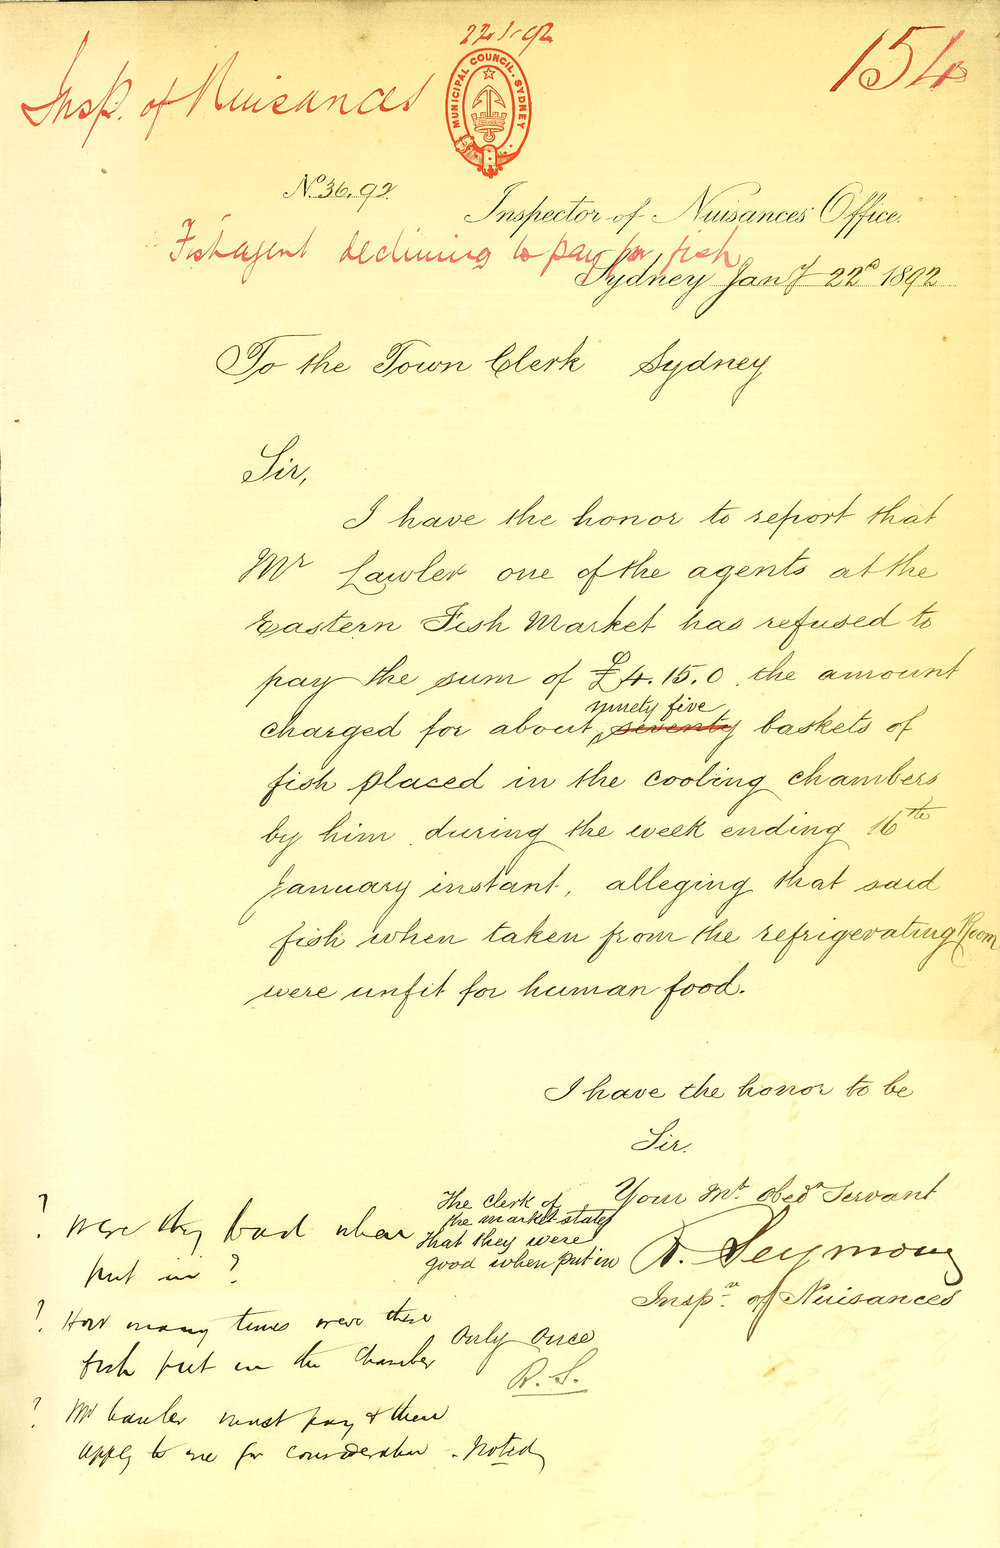 22.1.92
154
Insp. of Nuisances
MUNICIPAL COUNCIL. SYDNEY
No. 36.92.
Inspector of Nuisances' Office.
Fish agent declining to pay for fish
Sydney Jany 22d 1892
To the Town Clerk Sydney
Sir,
I have the honor to report that
Mr Lawler one of the agents at the
Eastern Fish Market has refused to
pay the sum of £4.15.0. the amount
ninety five
charged for about seventy baskets of
fish placed in the cooling chambers
by him during the week ending 16th
January instant, alleging that said
fish when taken from the refrigerating Room
were unfit for human food.
I have the honor to be
Sir.
Your Mt. obedt Servant
R. Seymour
Inspr. of Nuisances
? Were they bad when
put in ?
The clerk of
the market states
that they were
good when put in
? How many times were these
fish put in the Chamber
Only once
R. S.
? Mr Lawler must pay & then
apply to me for consideration. Noted